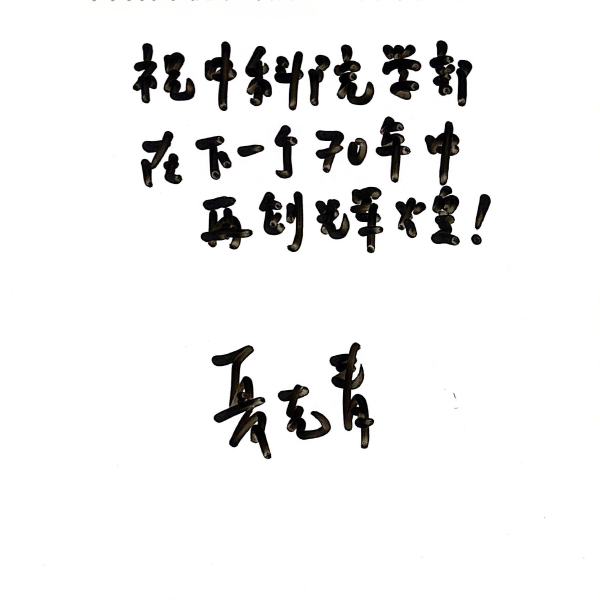 祝中科院学部
在下一个70年中
再创光辉煌!
夏克青